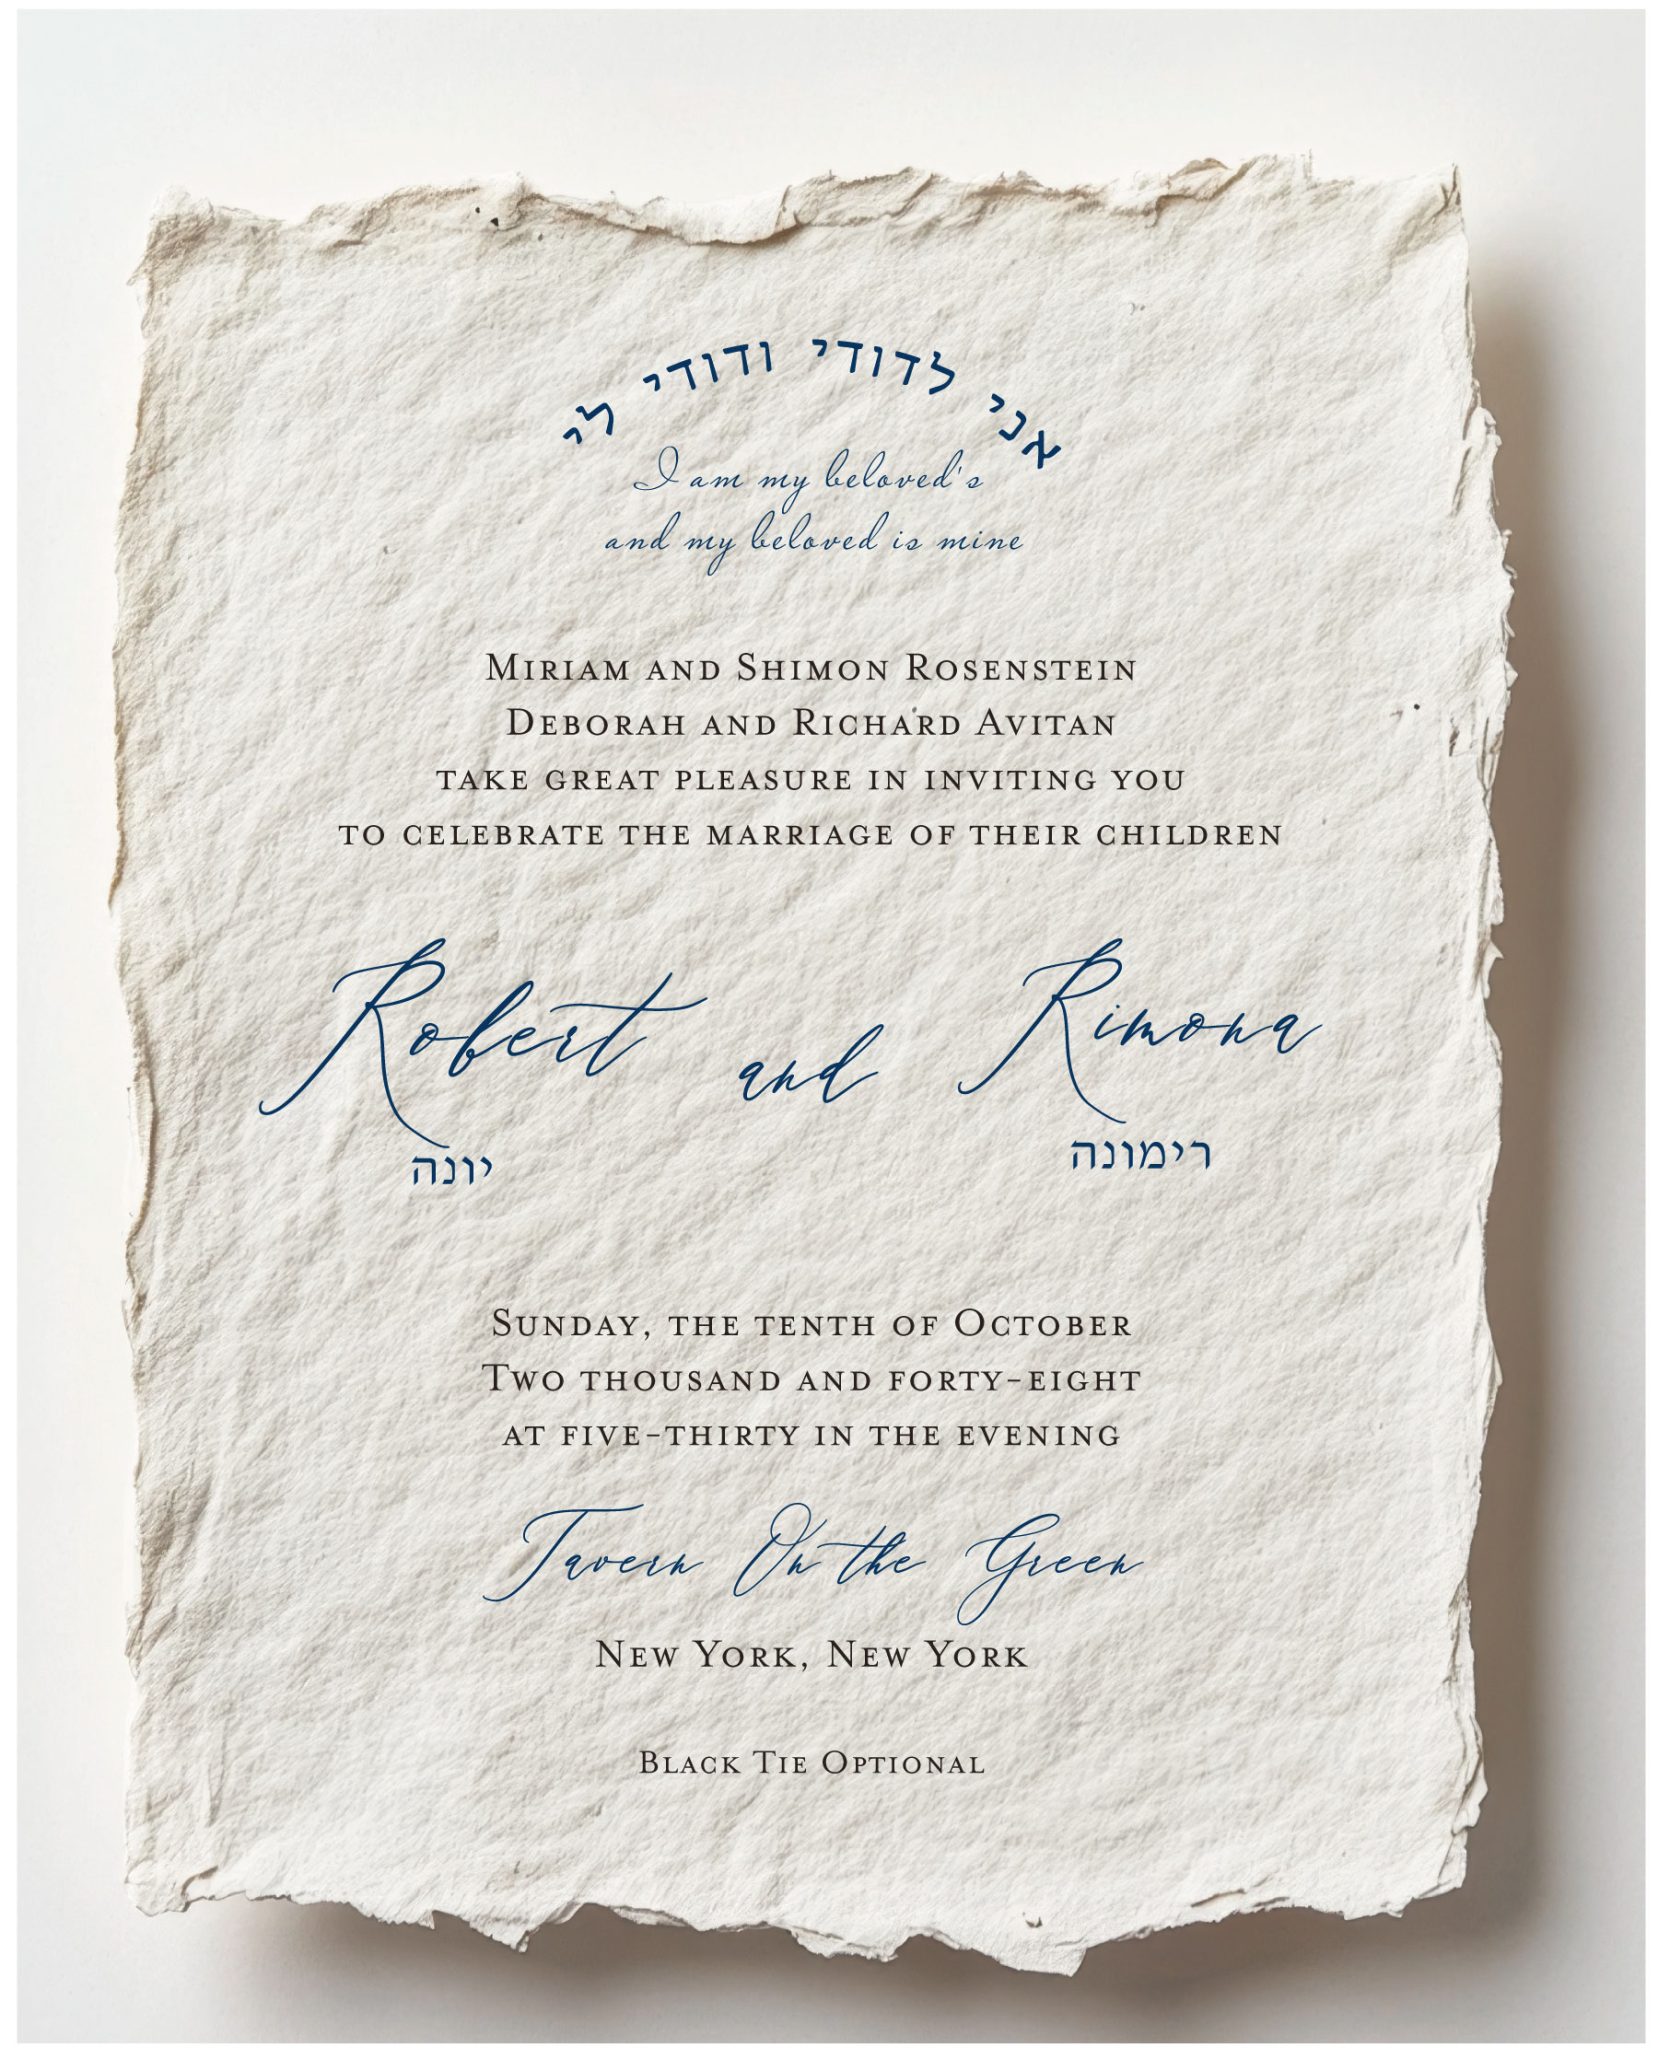 אני לדודי ודודי לי
I am my beloved's
and my beloved is mine
Miriam and Shimon Rosenstein
Deborah and Richard Avitan
take great pleasure in inviting you
to celebrate the marriage of their children
Robert and Rimona
יונה רימונה
Sunday, the tenth of October
Two thousand and forty-eight
at five-thirty in the evening
Tavern On the Green
New York, New York
Black Tie Optional